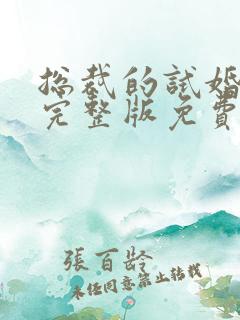 总裁的试婚
完整版免費
張百龄
未经同意禁止转载